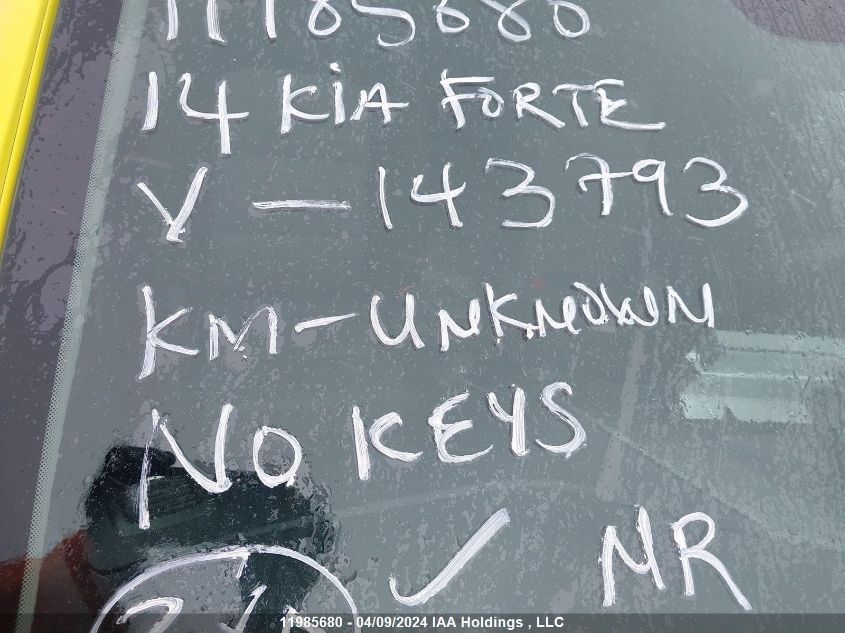 11985680
14 KiA FORTE
V - 143793
KM - UNKNOWN
NO KEYS
✓ MR
11985680 - 04/09/2024 IAA Holdings , LLC